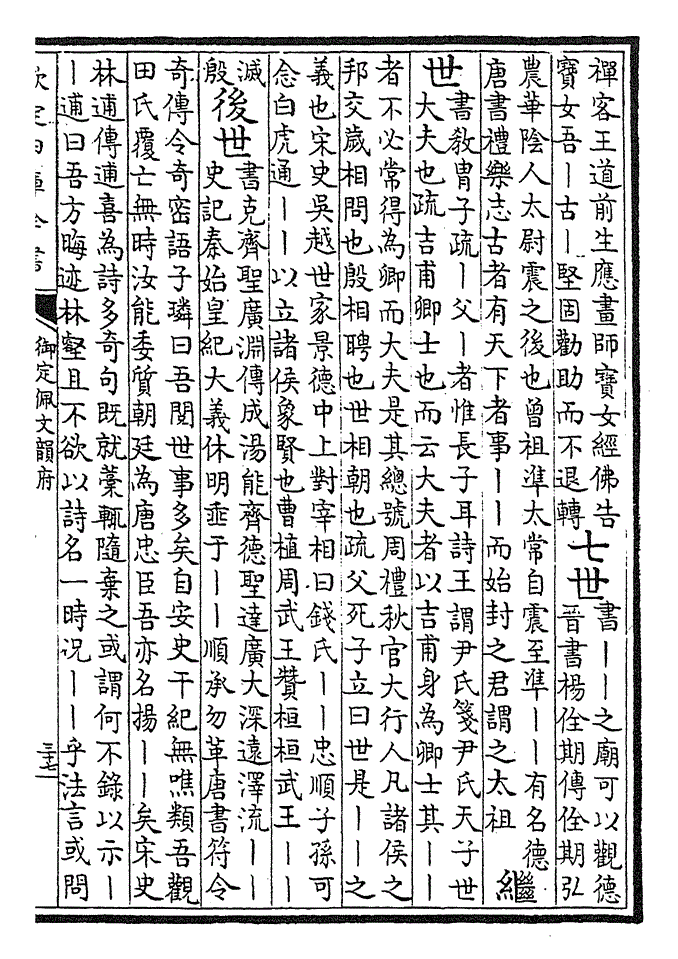 禪客王道前生應畫師寶女經佛告
寶女吾丨古丨堅固勸助而不退轉
七世
書丨丨之廟可以觀德
晉書楊佺期傳佺期弘
農華陰人太尉震之後也曾祖準太常自震至準丨丨有名德
唐書禮樂志古者有天下者事丨丨而始封之君謂之太祖
繼
世
書敎胄子疏丨父丨者惟長子耳詩王謂尹氏箋尹氏天子世
大夫也疏吉甫卿士也而云大夫者以吉甫身為卿士其丨丨
者不必常得為卿而大夫是其總號周禮秋官大行人凡諸侯之
邦交歲相問也殷相聘也世相朝也疏父死子立曰世是丨丨之
義也宋史吳越世家景德中上對宰相曰錢氏丨丨忠順子孫可
念白虎通丨丨以立諸侯象賢也曹植周武王贊桓桓武王丨丨
滅
殷
後世
書克齊聖廣淵傳成湯能齊德聖達廣大深遠澤流丨丨
史記秦始皇紀大義休明垂于丨丨順承勿革唐書符令
奇傳令奇密語子璘曰吾閱世事多矣自安史干紀無噍類吾觀
田氏覆亡無時汝能委質朝廷為唐忠臣吾亦名揚丨丨矣宋史
林逋傳逋喜為詩多奇句既就藁輒隨棄之或謂何不錄以示丨
丨逋曰吾方晦迹林壑且不欲以詩名一時況丨丨乎法言或問
欽定四庫全書
御定佩文韻府
三七